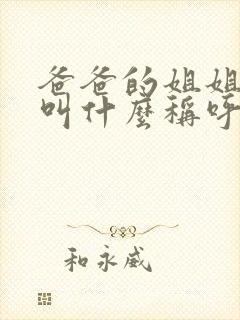 爸爸的姐姐
叫什麼稱呼
和永威